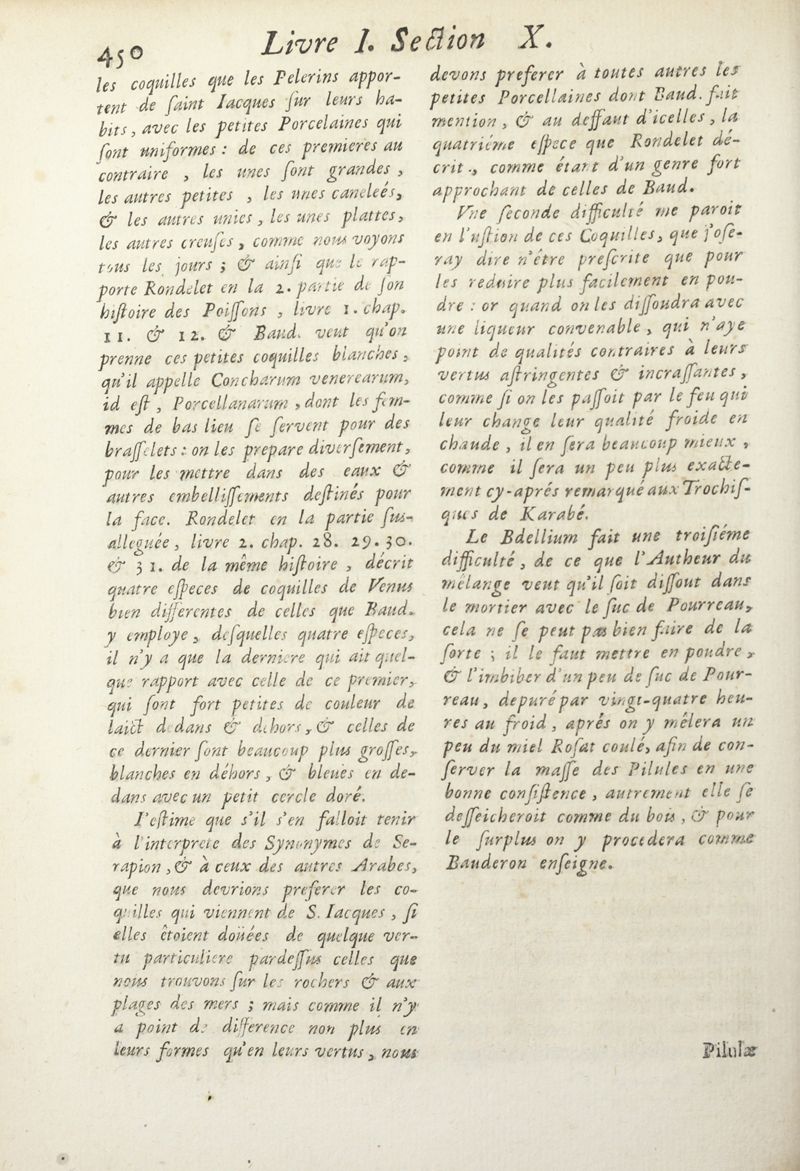 450
Livre I. Section X.
les coquilles que les Pelerins appor-
tent de ſaint Iacques ſur leurs ha-
bits, avec les petites Porcelaines qui
ſont uniformes : de ces premieres au
contraire , les unes ſont grandes ,
les autres petites , les unes caneleés,
& les autres unies , les unes plattes,
les autres creuſes , comme nous voyons
tous les jours ; & ainſi que le rap-
porte Rondelet en la 2. partie de ſon
hiſtoire des Poiſſons , livre 1. chap.
11. & 12. & Baud. veut qu'on
prenne ces petites coquilles blanches ,
qu'il appelle Concharum venerearum,
id eſt , Porcellanarum , dont les fem-
mes de bas lieu ſe ſervent pour des
braſſelets : on les prepare diverſement,
pour les mettre dans des eaux &
autres embelliſſements deſtinés pour
la face. Rondelet en la partie ſus-
alleguée , livre 2. chap. 28. 29. 30.
& 31. de la même hiſtoire , décrit
quatre eſpeces de coquilles de Venus
bien differentes de celles que Baud.
y employe , deſquelles quatre eſpeces,
il n'y a que la derniere qui ait quel-
que rapport avec celle de ce premier,
qui ſont fort petites de couleur de
laict dedans & dehors , & celles de
ce dernier ſont beaucoup plus groſſes,
blanches en déhors , & bleues en de-
dans avec un petit cercle doré.
I'eſtime que s'il s'en falloit tenir
à l'interprete des Synonymes de Se-
rapion , & à ceux des autres Arabes,
que nous devrions preferer les co-
quilles qui viennent de S. Iacques , ſi
elles étoient doüées de quelque ver-
tu particuliere pardeſſus celles que
nous trouvons ſur les rochers & aux
plages des mers ; mais comme il n'y
a point de difference non plus en
leurs formes qu'en leurs vertus , nous
devons preferer à toutes autres les
petites Porcellaines dont Baud. fait
mention , & au deffaut d'icelles , la
quatriéme eſpece que Rondelet dé-
crit , comme étant d'un genre fort
approchant de celles de Baud.
Vne ſeconde difficulté me paroit
en l'uſtion de ces Coquilles, que j'oſe-
ray dire n'être preſcrite que pour
les reduire plus facilement en pou-
dre : or quand on les diſſoudra avec
une liqueur convenable , qui n'aye
point de qualités contraires à leurs
vertus aſtringentes & incraſſantes ,
comme ſi on les paſſoit par le feu qui
leur change leur qualité froide en
chaude , il en ſera beaucoup mieux ,
comme il ſera un peu plus exacte-
ment cy-aprés remarqué aux Trochiſ-
ques de Karabé.
Le Bdellium fait une troiſiéme
difficulté , de ce que l'Autheur du
mélange veut qu'il ſoit diſſout dans
le mortier avec le ſuc de Pourreau,
cela ne ſe peut pas bien faire de la
ſorte ; il le faut mettre en poudre ,
& l'imbiber d'un peu de ſuc de Pour-
reau , depuré par vingt-quatre heu-
res au froid , aprés on y mêlera un
peu du miel Roſat coulé, afin de con-
ſerver la maſſe des Pilules en une
bonne conſiſtence , autrement elle ſe
deſſeicheroit comme du bois , & pour
le ſurplus on y procedera comme
Bauderon enſeigne.
Pilulæ